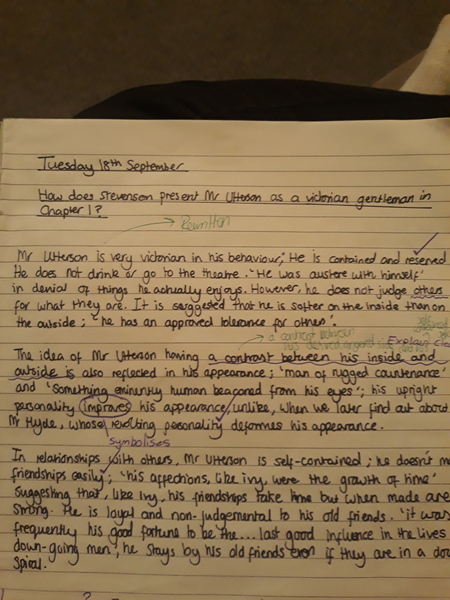 Tuesday 18th September
How does Stevenson present Mr Utterson as a victorian gentleman in
Chapter 1?
Rewritten
Mr Utterson is very victorian in his behaviour; He is contained and reserved
He does not drink or go to the theatre. 'He was austere with himself'
in denial of things he actually enjoys. However, he does not judge others
for what they are. It is suggested that he is softer on the inside than on
the outside; 'he has an approved tolerance for others'.
a contrast between
Explain
The idea of Mr Utterson having a contrast between his inside and
outside is also reflected in his appearance; 'man of rugged countenance'
and 'something eminently human beaconed from his eyes'; his upright
personality improves his appearance, unlike, when we later find out about
Mr Hyde, whose revolting personality deformes his appearance.
symbolises
In relationships with others, Mr Utterson is self-contained; he doesn't
friendships easily; 'his affections, like ivy, were the growth of time'
suggesting that, like ivy, his friendships take time but when made are
strong. He is loyal and non-judgemental to his old friends. 'it was
frequently his good fortune to be the... last good influence in the lives
down-going men', he stays by his old friends even if they are in a
spiral.